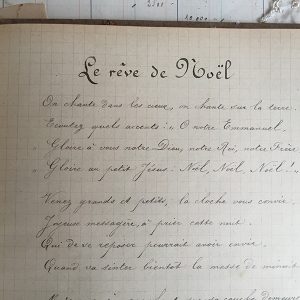 Le rêve de Noël
On chante dans les cieux, on chante sur la terre.
Ecoutez quels accents: „O notre Emmanuel,
„Gloire à vous notre Dieu, notre Roi, notre Frère
„Gloire au petit Jésus. Noël, Noël, Noël!"
Venez grands et petits, la cloche vous convie.
Joyeuse messagère, à prier cette nuit.
Qui de se reposer pourrait avoir envie.
Quand va sonner bientôt la messe de minuit
sa couche